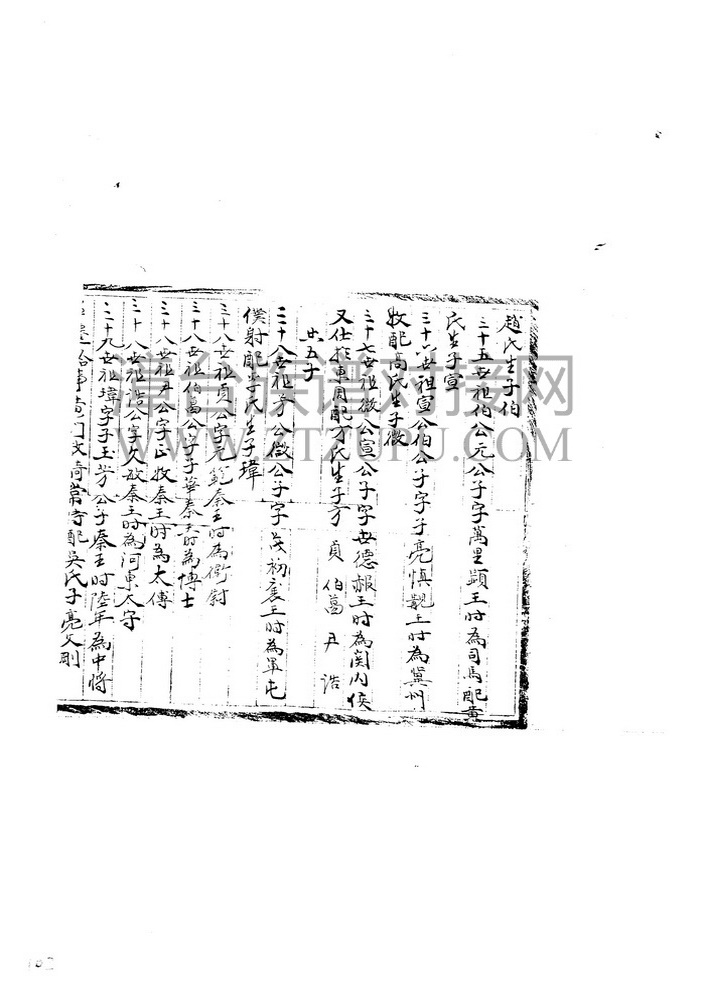 趙氏生子伯
三十五世祖伯公元公子字萬里顕王时為司馬配黄
氏生子宣
三十六世祖宣公伯公子字子亮慎靚王时為冀州
牧配高氏生子徴
三十七世祖徴公宣公子字世德赧王时為関内侯
又仕於東周配方氏生子方 貞 伯萬 尹 浩
共五子
三十八世祖方公徴公子字 初襄王时為軍屯
僕射配李氏生子瑋
三十八世祖貞公字元範秦王时為衛尉
三十八世祖伯萬公字子華秦王时為博士
三十八世祖尹公字正牧秦王时為太傅
三十八世祖浩公字久敏秦王时為河東太守
三十九世祖瑋字子玉方公子秦王时陸年為中将
配吳氏子亮久剛
唐台族谱对接网
WWW.ZTZUPU.COM